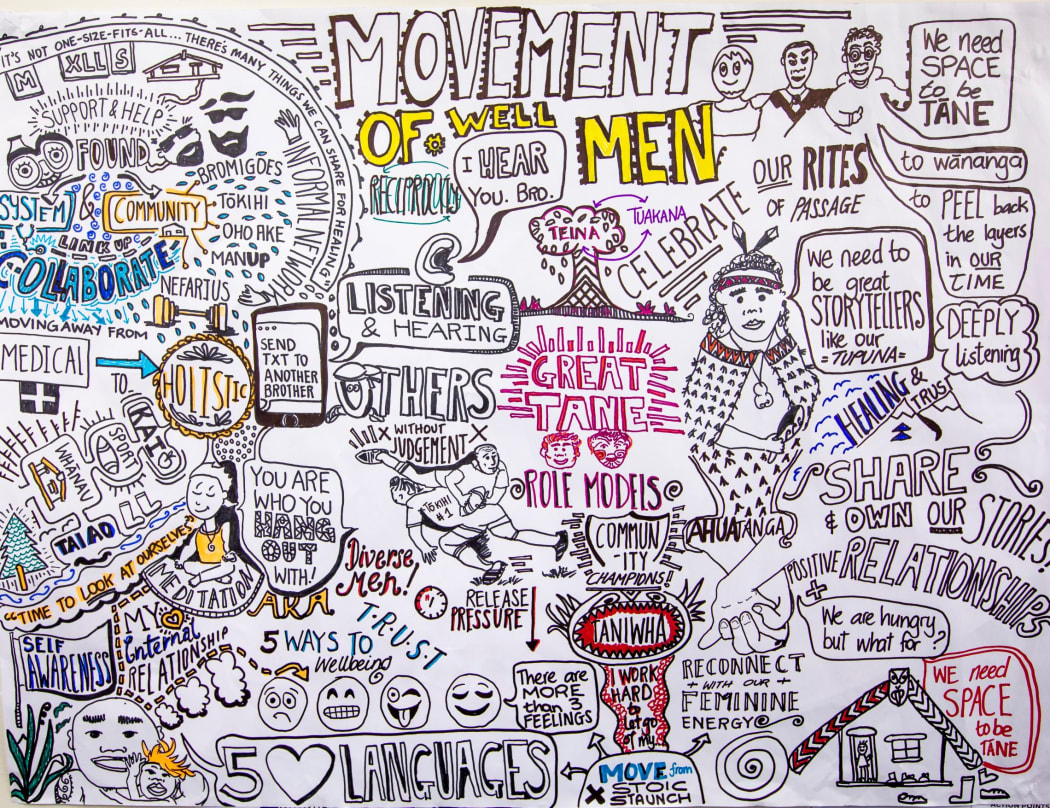 MOVEMENT
OF WELL
MEN
IT'S NOT ONE-SIZE-FITS-ALL... THERE'S MANY THINGS WE CAN SHARE FOR HEALING"
M XLL S
SUPPORT & HELP
FOUND
INFORMAL NETWORK
SYSTEM
&
COMMUNITY
LINK UP
COLLABORATE
BROMIGOES
TŌKIHI
OHO AKE
MANUP
NEFARIUS
MOVING AWAY FROM
MEDICAL
TO
HOLISTIC
KAI
SPORT
WHANAU
TAIAO
"TIME TO LOOK AT OURSELVES"
MEDITATION
SELF
AWARENESS
MY
Internal
RELATIONSHIP
RECIPROCITY
I HEAR
YOU. BRO.
LISTENING
& HEARING
SEND
TXT TO
ANOTHER
BROTHER
OTHERS
WITHOUT
JUDGEMENT
TOKIHI
#1
YOU ARE
WHO YOU
HANG
OUT
WITH!
Diverse
Men!
AKA
5 WAYS TO
Wellbeing
TRUST
RELEASE
PRESSURE
There are
MORE
than 3
FEELINGS
5 LANGUAGES
TEINA
TUAKANA
CELEBRATE
OUR RITES
OF PASSAGE
GREAT
TANE
ROLE MODELS
COMMUN
-ITY
CHAMPIONS!
TANIWHA
I WORK
HARD
to
let go
of my..
MOVE from
STOIC
STAUNCH
AHUATANGA
RECONNECT
WITH OUR
FEMININE
ENERGY
We need
SPACE
to be
TĀNE
to wānanga
to PEEL back
the layers
in OUR
TIME
we need to
be great
STORYTELLERS
like our
=TUPUNA=
DEEPLY
listening
HEALING &
TRUST
SHARE
& OWN OUR
STORIES
POSITIVE RELATIONSHIPS
+
We are hungry
but what for?
WE need
SPACE
to be
TĀNE
ACTION POINT